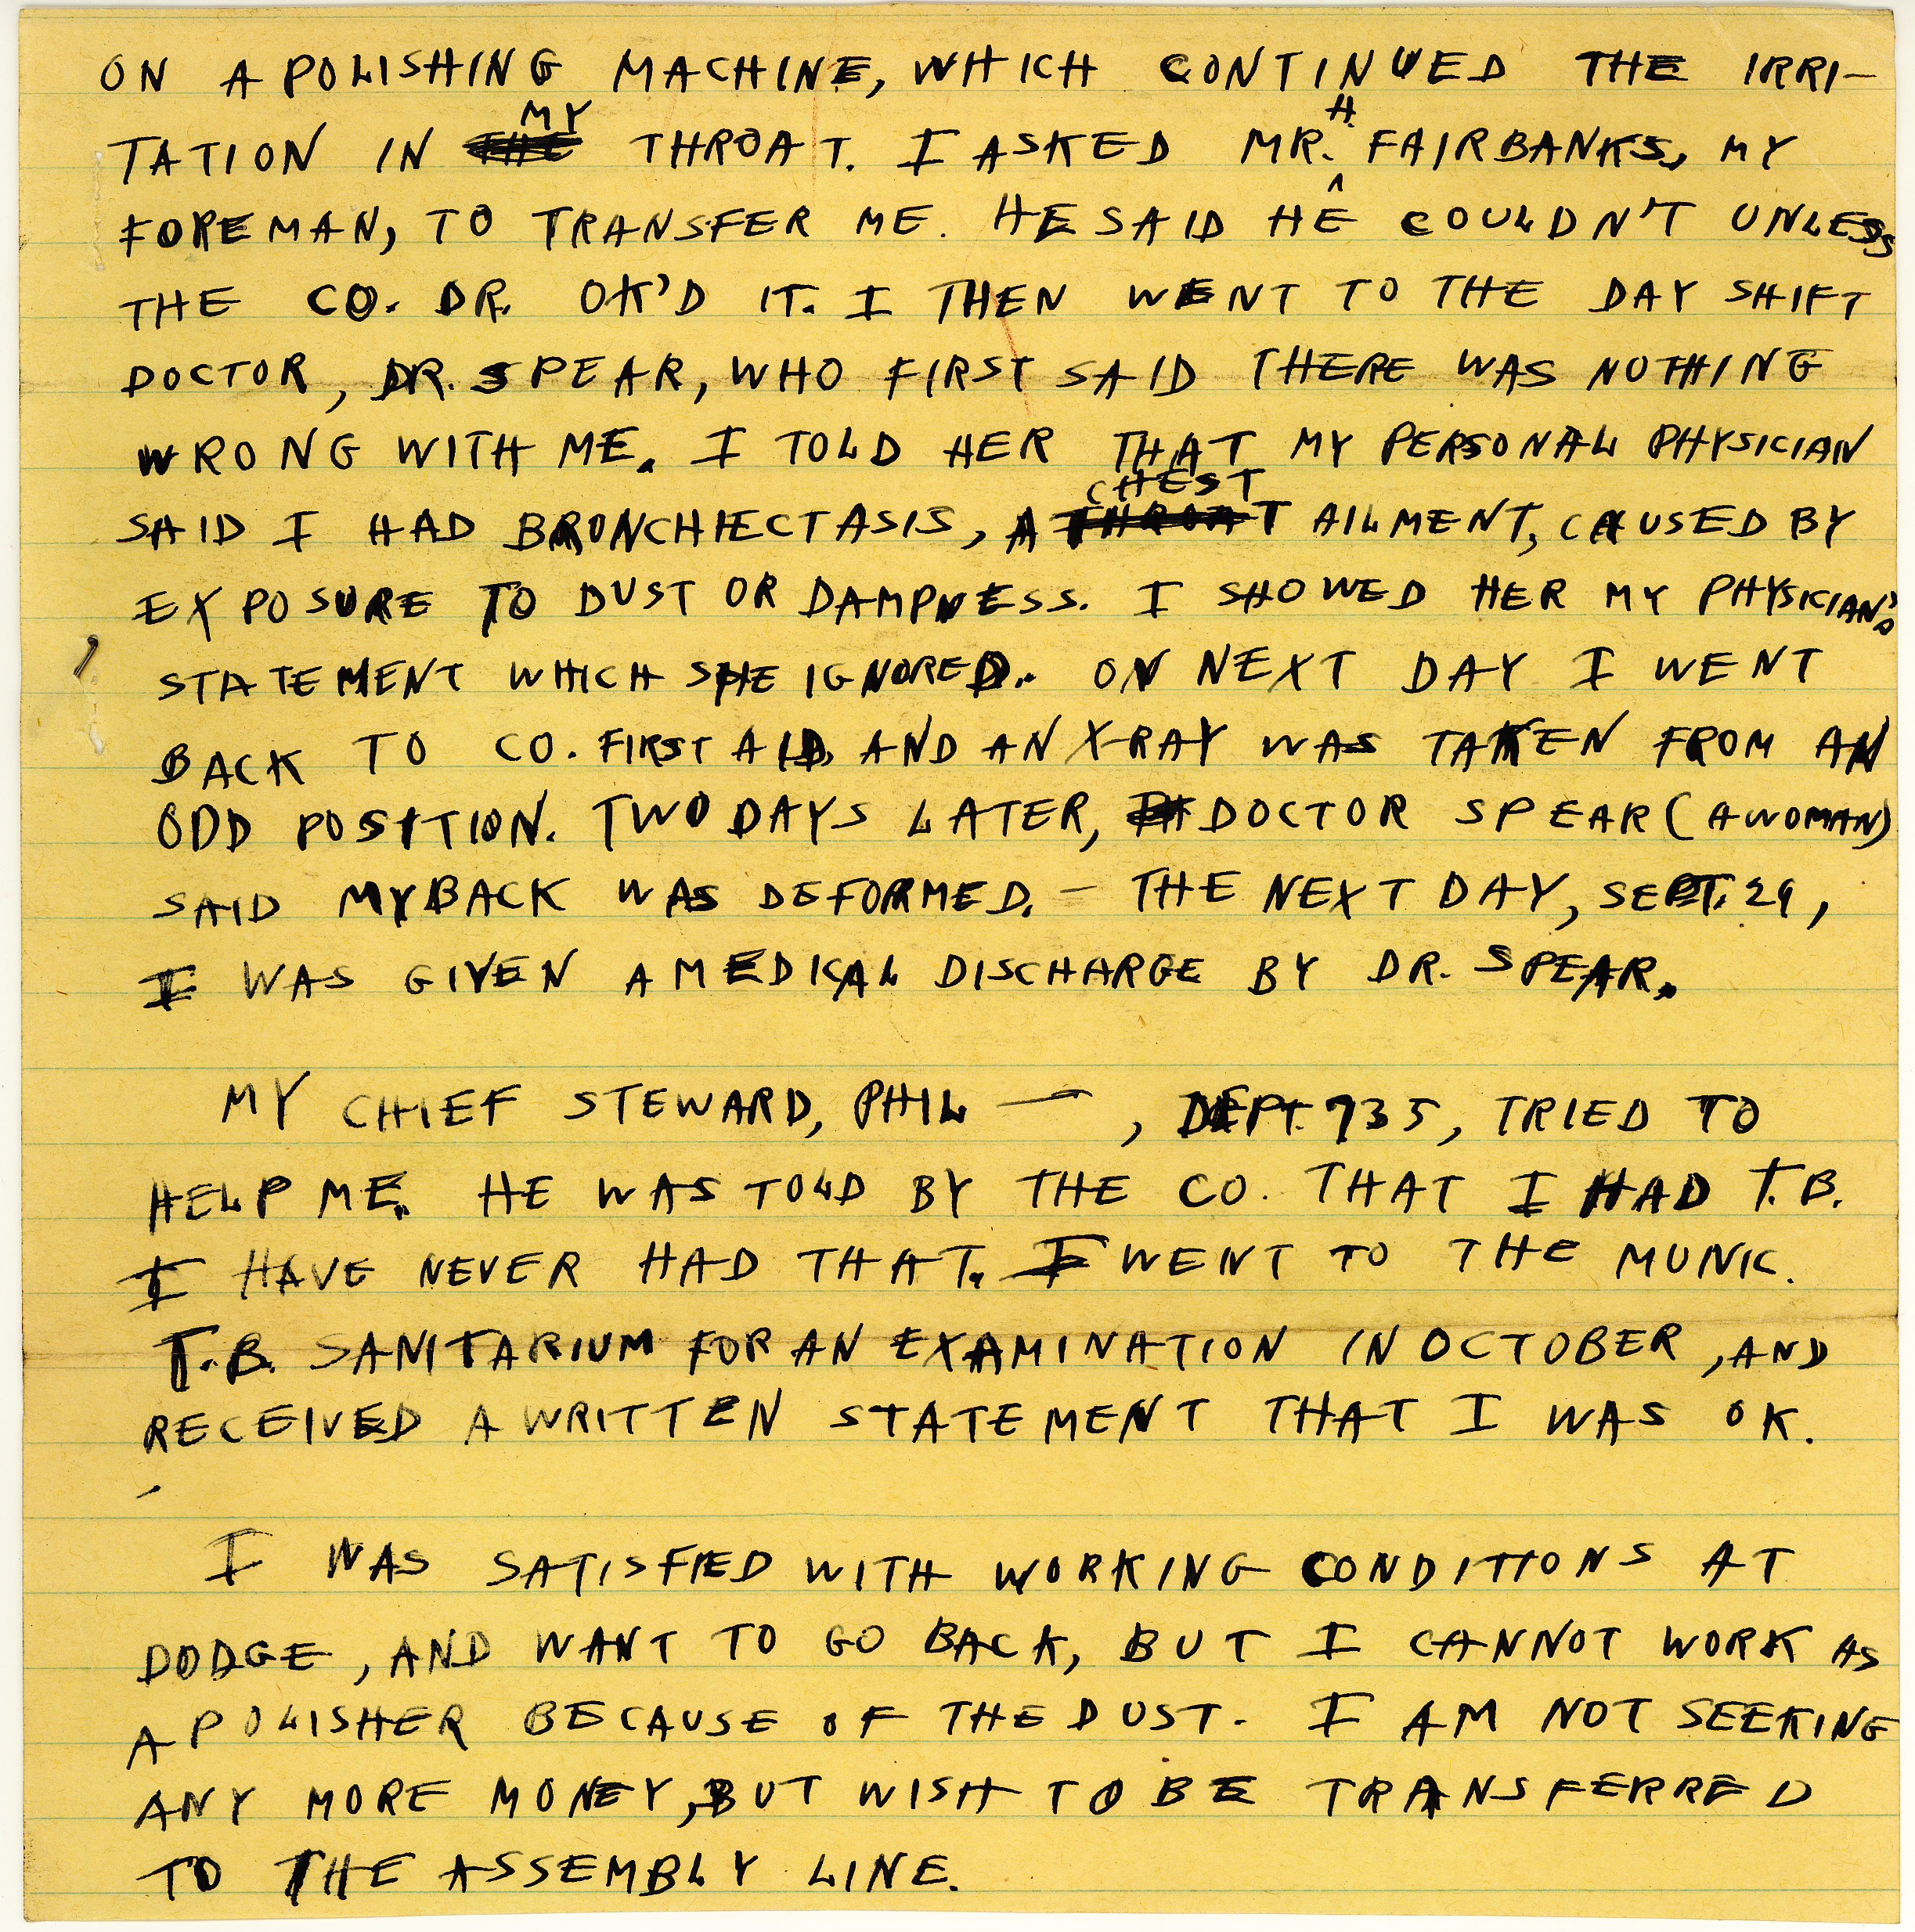 ON A POLISHING MACHINE, WHICH CONTINUED THE IRRI-
TATION IN MY THROAT. I ASKED MR. H. FAIRBANKS, MY
FOREMAN, TO TRANSFER ME. HE SAID HE COULDN'T UNLESS
THE CO. DR. OK'D IT. I THEN WENT TO THE DAY SHIFT
DOCTOR, DR. SPEAR, WHO FIRST SAID THERE WAS NOTHING
WRONG WITH ME. I TOLD HER THAT MY PERSONAL PHYSICIAN
SAID I HAD BRONCHIECTASIS, A CHEST AILMENT, CAUSED BY
EXPOSURE TO DUST OR DAMPNESS. I SHOWED HER MY PHYSICIAN'S
STATEMENT WHICH SHE IGNORED. ON NEXT DAY I WENT
BACK TO CO. FIRST AID, AND AN X-RAY WAS TAKEN FROM AN
ODD POSITION. TWO DAYS LATER, DOCTOR SPEAR (A WOMAN)
SAID MY BACK WAS DEFORMED. - THE NEXT DAY, SEPT. 29,
I WAS GIVEN A MEDICAL DISCHARGE BY DR. SPEAR.
MY CHIEF STEWARD, PHIL —, DEPT. 735, TRIED TO
HELP ME. HE WAS TOLD BY THE CO. THAT I HAD T.B.
I HAVE NEVER HAD THAT. I WENT TO THE MUNIC.
T.B. SANITARIUM FOR AN EXAMINATION IN OCTOBER, AND
RECEIVED A WRITTEN STATEMENT THAT I WAS OK.
I WAS SATISFIED WITH WORKING CONDITIONS AT
DODGE, AND WANT TO GO BACK, BUT I CANNOT WORK AS
A POLISHER BECAUSE OF THE DUST. I AM NOT SEEKING
ANY MORE MONEY, BUT WISH TO BE TRANSFERRED
TO THE ASSEMBLY LINE.